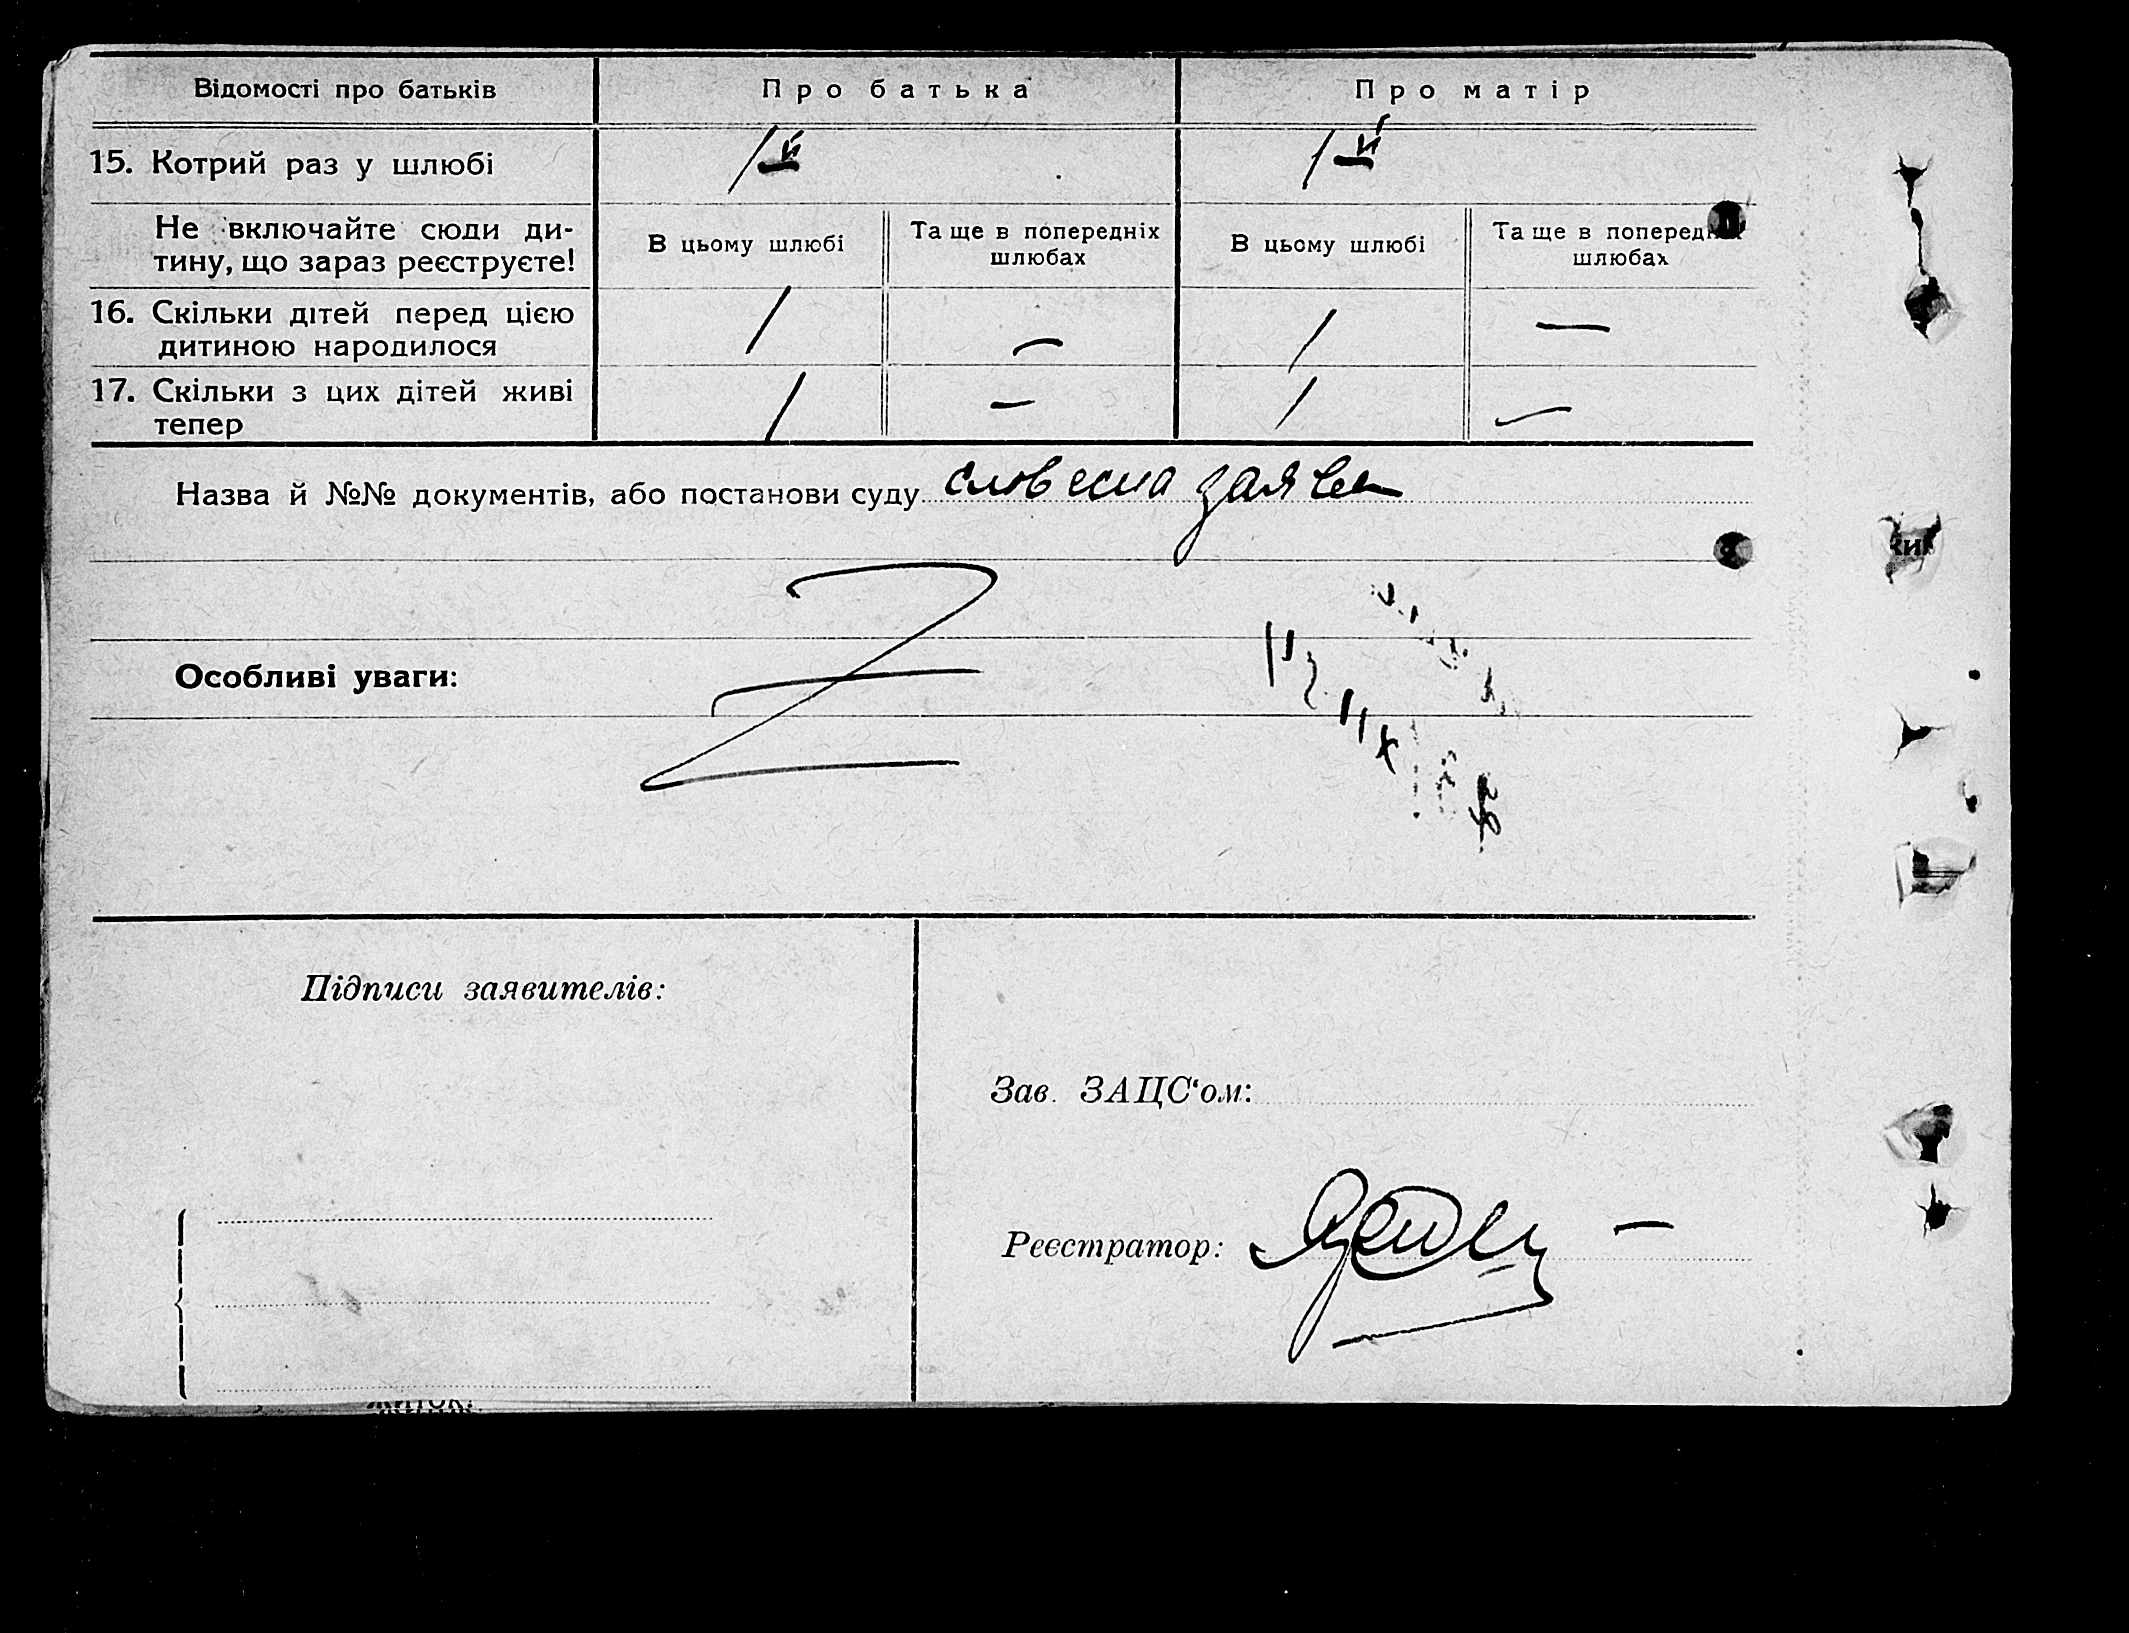 Відомості про батьків Про батька Про матір
15. Котрий раз у шлюбі 1й 1й
Не включайте сюди ди-
тину, що зараз реєструєте!
В цьому шлюбі Та ще в попередніх
шлюбах
В цьому шлюбі Та ще в попередніх
шлюбах
16. Скільки дітей перед цією
дитиною народилося 1 — 1 —
17. Скільки з цих дітей живі
тепер 1 — 1 —
Назва й №№ документів, або постанови суду словесна заява
Особливі уваги:
Підписи заявителів:
Зав. ЗАЦС‘ом:
Реєстратор: